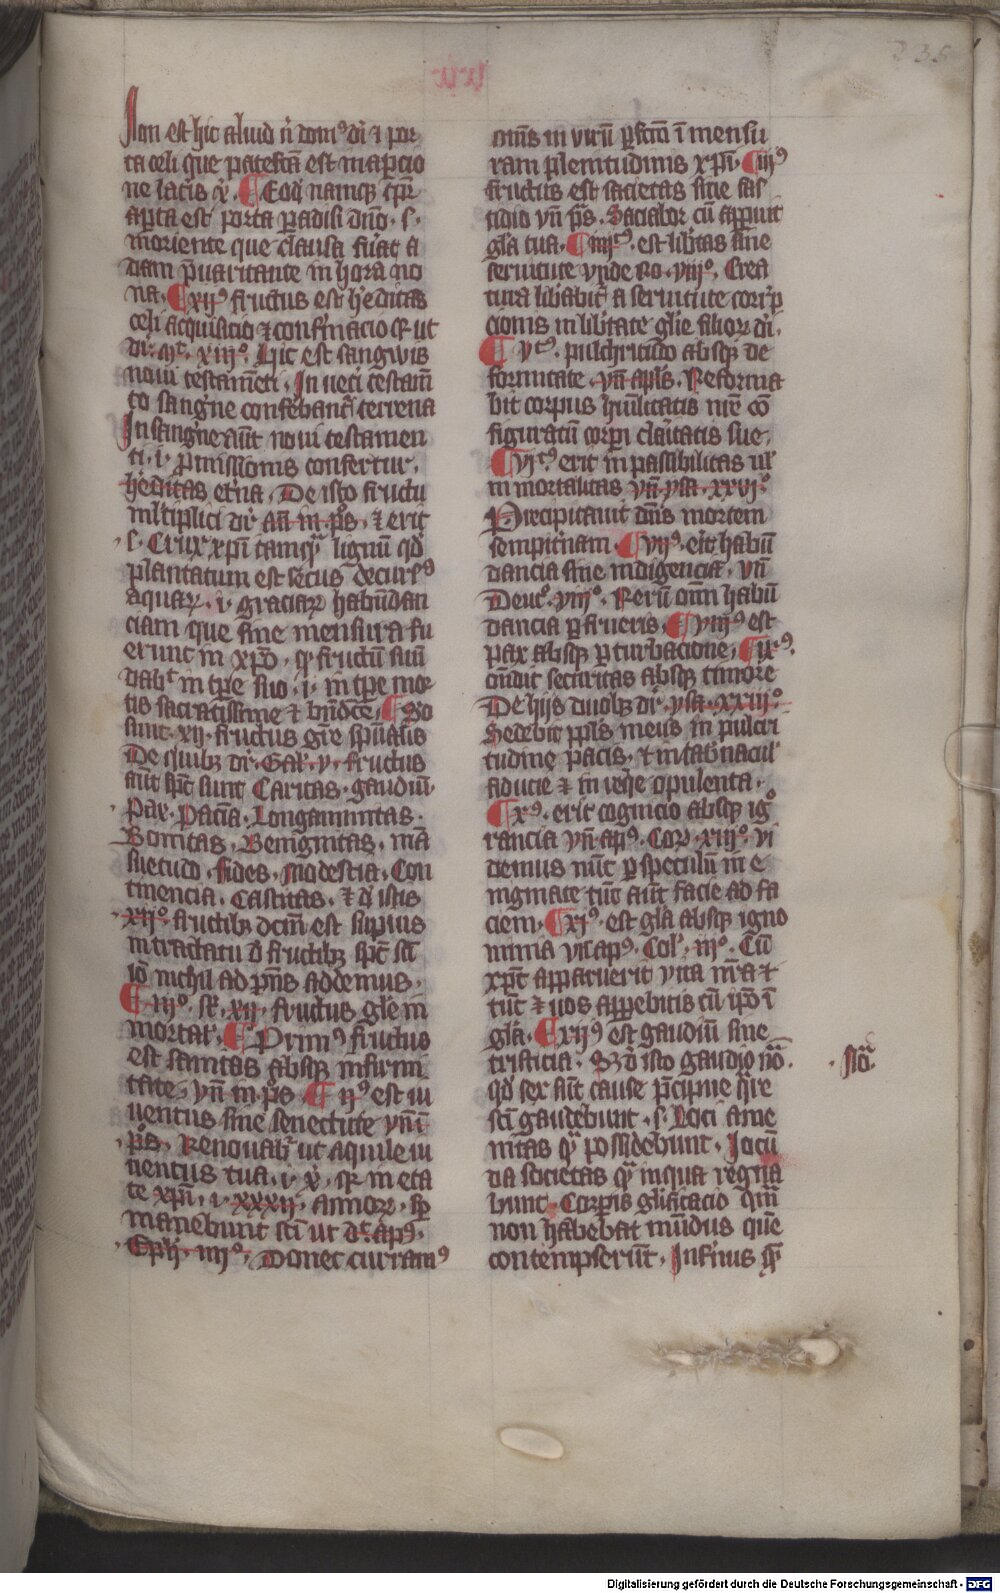 235
Non est hic aliud ñ dom⁹ dī ⁊ por
ta celi que patefcā est in aꝑcio
ne lacis x̄. ¶ Eoqꝫ namqꝫ tꝑr
aꝑta est porta ꝑadisi dn̄o. s.
moriente que clausa fuāt a
dam p̄uaricante in hora no
na. ¶ xij⁹ fructus est h̓editas
celi acquisicio ⁊ confr̄macio qꝛ ut
dr̄. mͭ. xiiij⁰. Hic est sangwis
noui testam̄eti. In ueti testam̄
to sangīne conferebant᷑ terrena
In sangīne aūt noui testamen
ti. i. ꝓmissionis confertur.
h̓editas et̓na. De isto fructu
ml̓tiplici dr̄ añ in p̄s. ⁊ erit
.s. Crux xp̄i tamq̄ʒ lignū qd̓
plantatum est secus decurs⁹
aquaꝝ. i. graciaꝝ habūdan
ciam que sine mensura fu
erunt in xp̄o. qꝛ fructū suū
dabͭ in tp̄e suo. i. in tp̄e mor
tis sacratissime ⁊ bn̄dc̄e. ¶ Bo
sunt. xij. fructus grē spūalis
De quibꝫ dr̄. Gal̓. v. fructus
aūt spc̄ sunt Caritas. gaudiū.
Pax. Pacīa. Longanimitas.
Bonitas. Benignitas. mā
suetudo. fides. modestia. Con
tinencia. Castitas. ⁊ d̓ istis
xij⁰. fructibꝫ dcm̄ est supius
in tractatu d̓ fructibꝫ spc̄ scī
iō nichil ad pn̄s addemus.
¶ iij⁰. sꝛ. xij fructus glē in
mortal̓. ¶ Prim⁹ fructus
est sanitas absqꝫ infirmi
tate. vn̄ in p̄s ¶ ij⁹ est iu
uentus sine senectute vn̄ ī
.p̄s. Renouabͬ ut aquile iu
uentus tua. i. x̄. qꝛ in eta
te xp̄i. i. xxxij. annoꝝ. sꝑ
manebunt scī ut d̓ᷓ. ap⁹.
.Eph̓. iiij⁰. Donec curram⁹
om̄s in virū ꝑfcm̄ ī mensu
ram plenitudinis xp̄i. ¶ iij⁹
fructus est sacietas sine fas
tidio vn̄ p̄s. Saciabor cū apꝑuit
gl̄a tua. ¶ iiij⁹. est lib̓tas sine
seruitute vnde Ro. viij⁰. Crea
tura libabit̓ a seruitute corrup
cionis in lib̓tate glīe filioꝝ dī.
¶ v⁹. pulchritudo absqꝫ de
formitate. vn̄ apl̄s. Reforma
bit corpus hūilitatis nrē cō
figuratū corpi claītatis sue.
¶ vi⁹. erit inpassibilitas ul̓
inmortalitas vn̄ ysa. xxvi⁰.
Precipitauit dn̄s mortem
sempit̓nam. ¶ vij⁹. eīt habū
dancia sine indigencia. vn̄
Deuͭ. viij⁰. Rerū om̄i habū
dancia ꝑfrueris. ¶ viij⁹ est
pax absqꝫ ꝑturbacione. ¶ ix⁹.
ondit securitas absqꝫ timore
De hijs duobꝫ dr̄. ysa. xxxij⁰.
Sedebit ppl̄s meus in pulcri
tudine pacis. ⁊ in tab̓nacul̓
fiducie ⁊ in req̄e opulenta.
¶ x⁹. erit cognicio absqꝫ ig⁰
rancia vn̄ ap⁹. Coꝝ. xiij⁰. vi
demus nūc ꝑ speculū in e
nigmate tūc aūt facie ad fa
ciem. ¶ xi⁹. est gl̄a absqꝫ igno
minia vn̄ ap⁹. Col̓. iij⁰. Cū
xp̄c apparuerit vita nr̄a ⁊
tūc ⁊ uos aꝑꝑebitis cū ip̄o ī
gl̄a. ¶ xij⁹ est gaudiū sine
tristicia. Sꝫ d̓ isto gaudio nō.
.Nō.
qd̓ sex sūt cause p̄cipue q̄re
scī gaudebunt. s. Loci ame
nitas q̄ʒ possidebunt. Jocū
da societas q̄ʒ in qua regna
bunt. Corꝑis glīficacio q̄m̄
non habebat mūdus que
contempserūt. Infīnus q̄ʒ
Digitalisierung gefördert durch die Deutsche Forschungsgemeinschaft - DFG